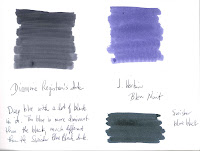 Diamine Registrar's Ink
Deep blue with a lot of black
in it. The blue is more dominant
than the black, much different
than the Swisher Blue Black Ink
J. Herbin
Bleu Nuit
Swisher
blue black